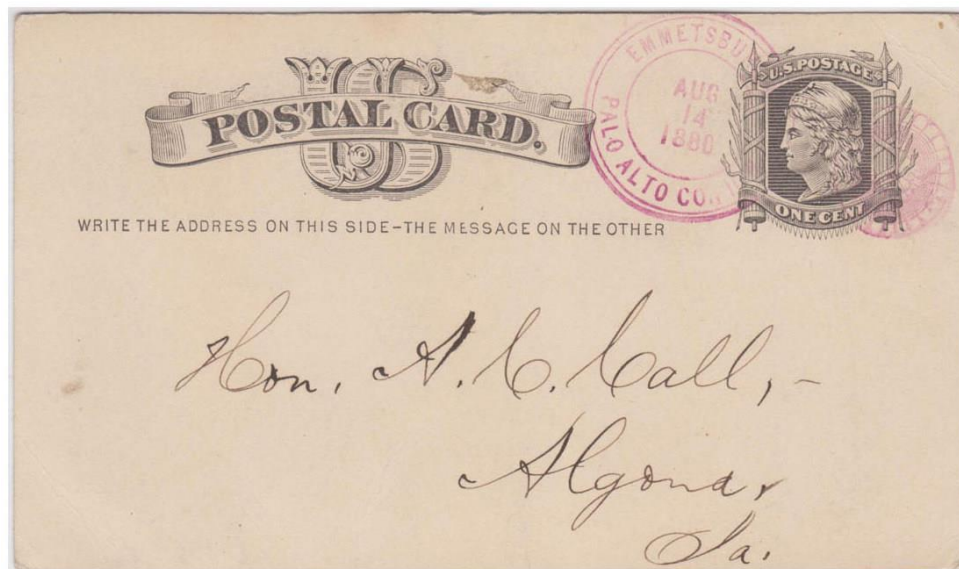 US
POSTAL CARD.
WRITE THE ADDRESS ON THIS SIDE-THE MESSAGE ON THE OTHER
EMMETSBU
AUG
14
1880
PALO ALTO CO.
U.S. POSTAGE
ONE CENT
Hon. A. C. Call,-
Algona,
Ia.